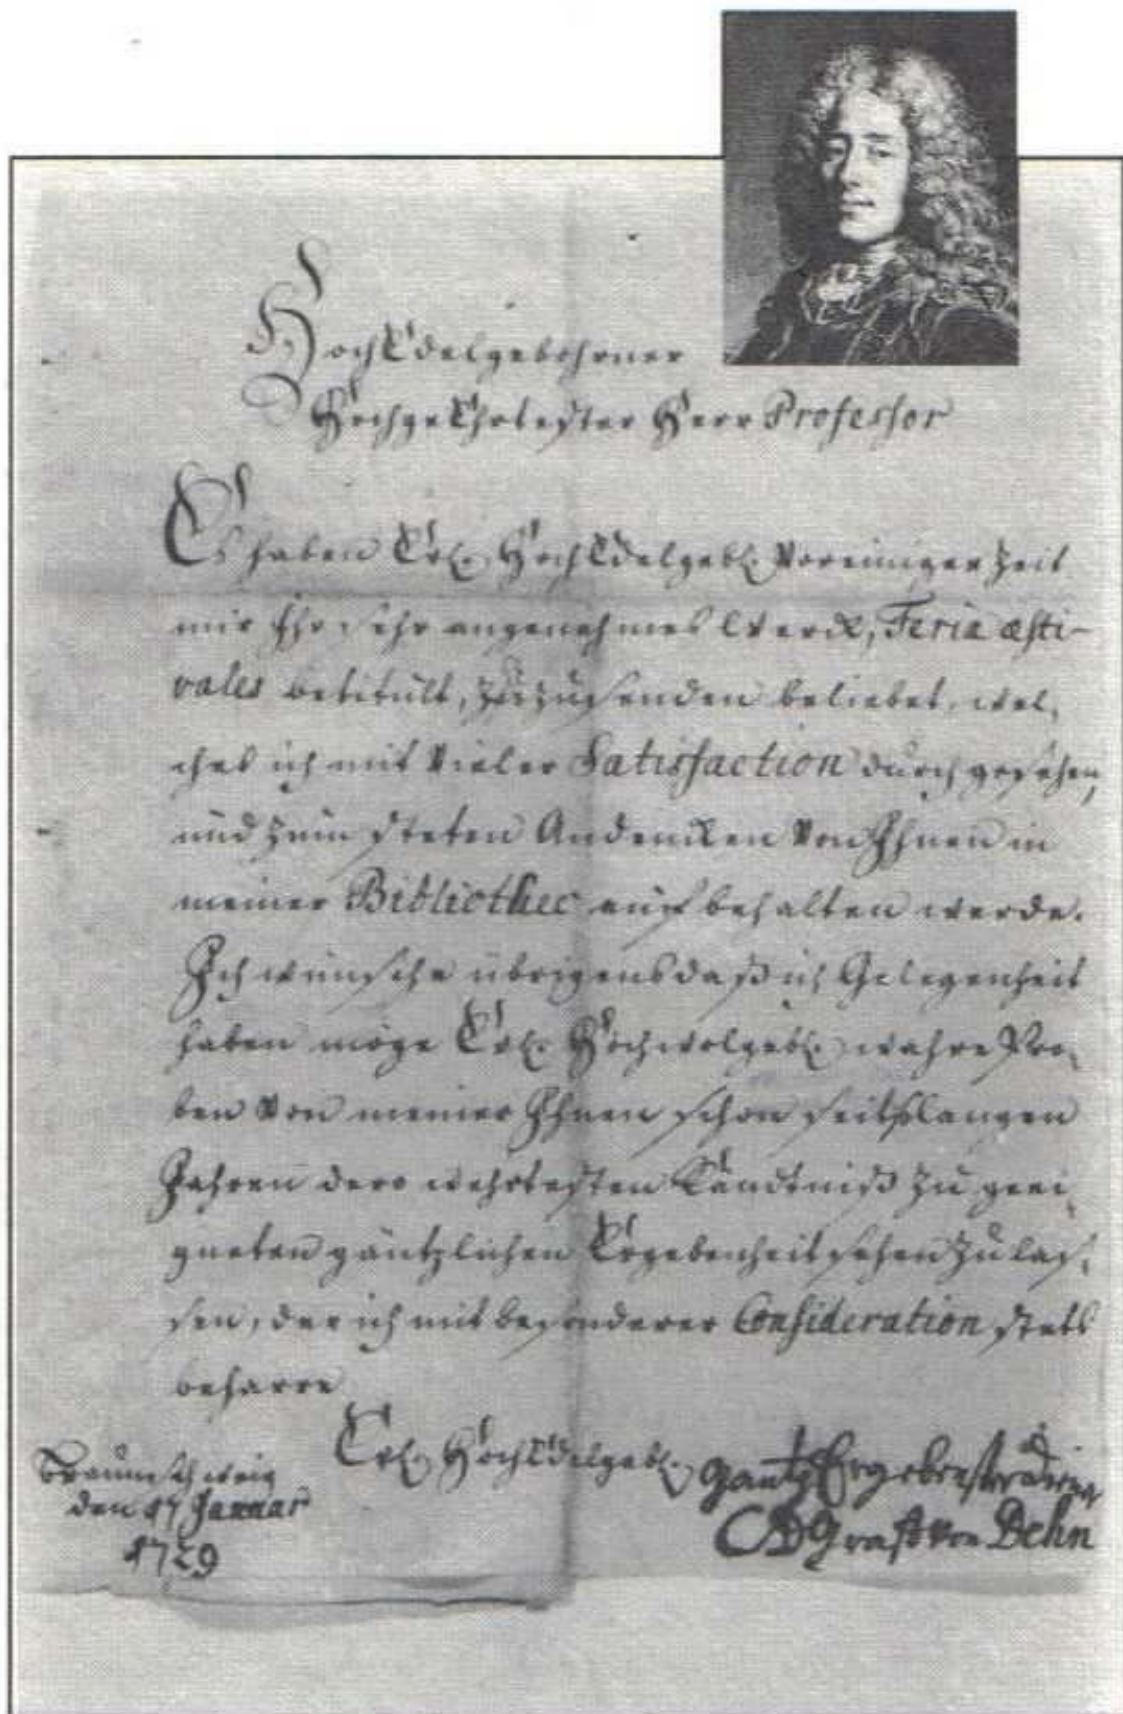 HochEdelgebohrner
HochgeEhrtester Herr Professor
Es haben Ewl. HochEdelgebl. vor einiger Zeit
mir Ihr sehr angenehmes Werck, Feriæ æsti-
vales betitult, zuzusenden beliebet, wel-
ches ich mit vieler Satisfaction durchgesehen,
und zum steten Andencken von Ihnen in
meiner Bibliothec auf behalten werde.
Ich wünsche übrigens daß ich Gelegenheit
haben möge Ewl. Hochwolgebl. wahre Pro-
ben von meiner Ihnen schon seit langen
Jahren dero wehrtesten Kändtniß zu geei-
gneten gäntzlichen Ergebenheit sehen zu las-
sen, der ich mit besonderer Consideration stets
beharre
Ewl. HochEdelgebl.
Braunschweig
den 17 Januar
1729
gantz Ergebenster diener
CDGraff von Dehn